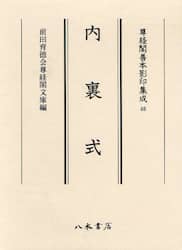 尊経閣善本影印集成 48
内裏式
前田育徳会尊経閣文庫編
八木書店